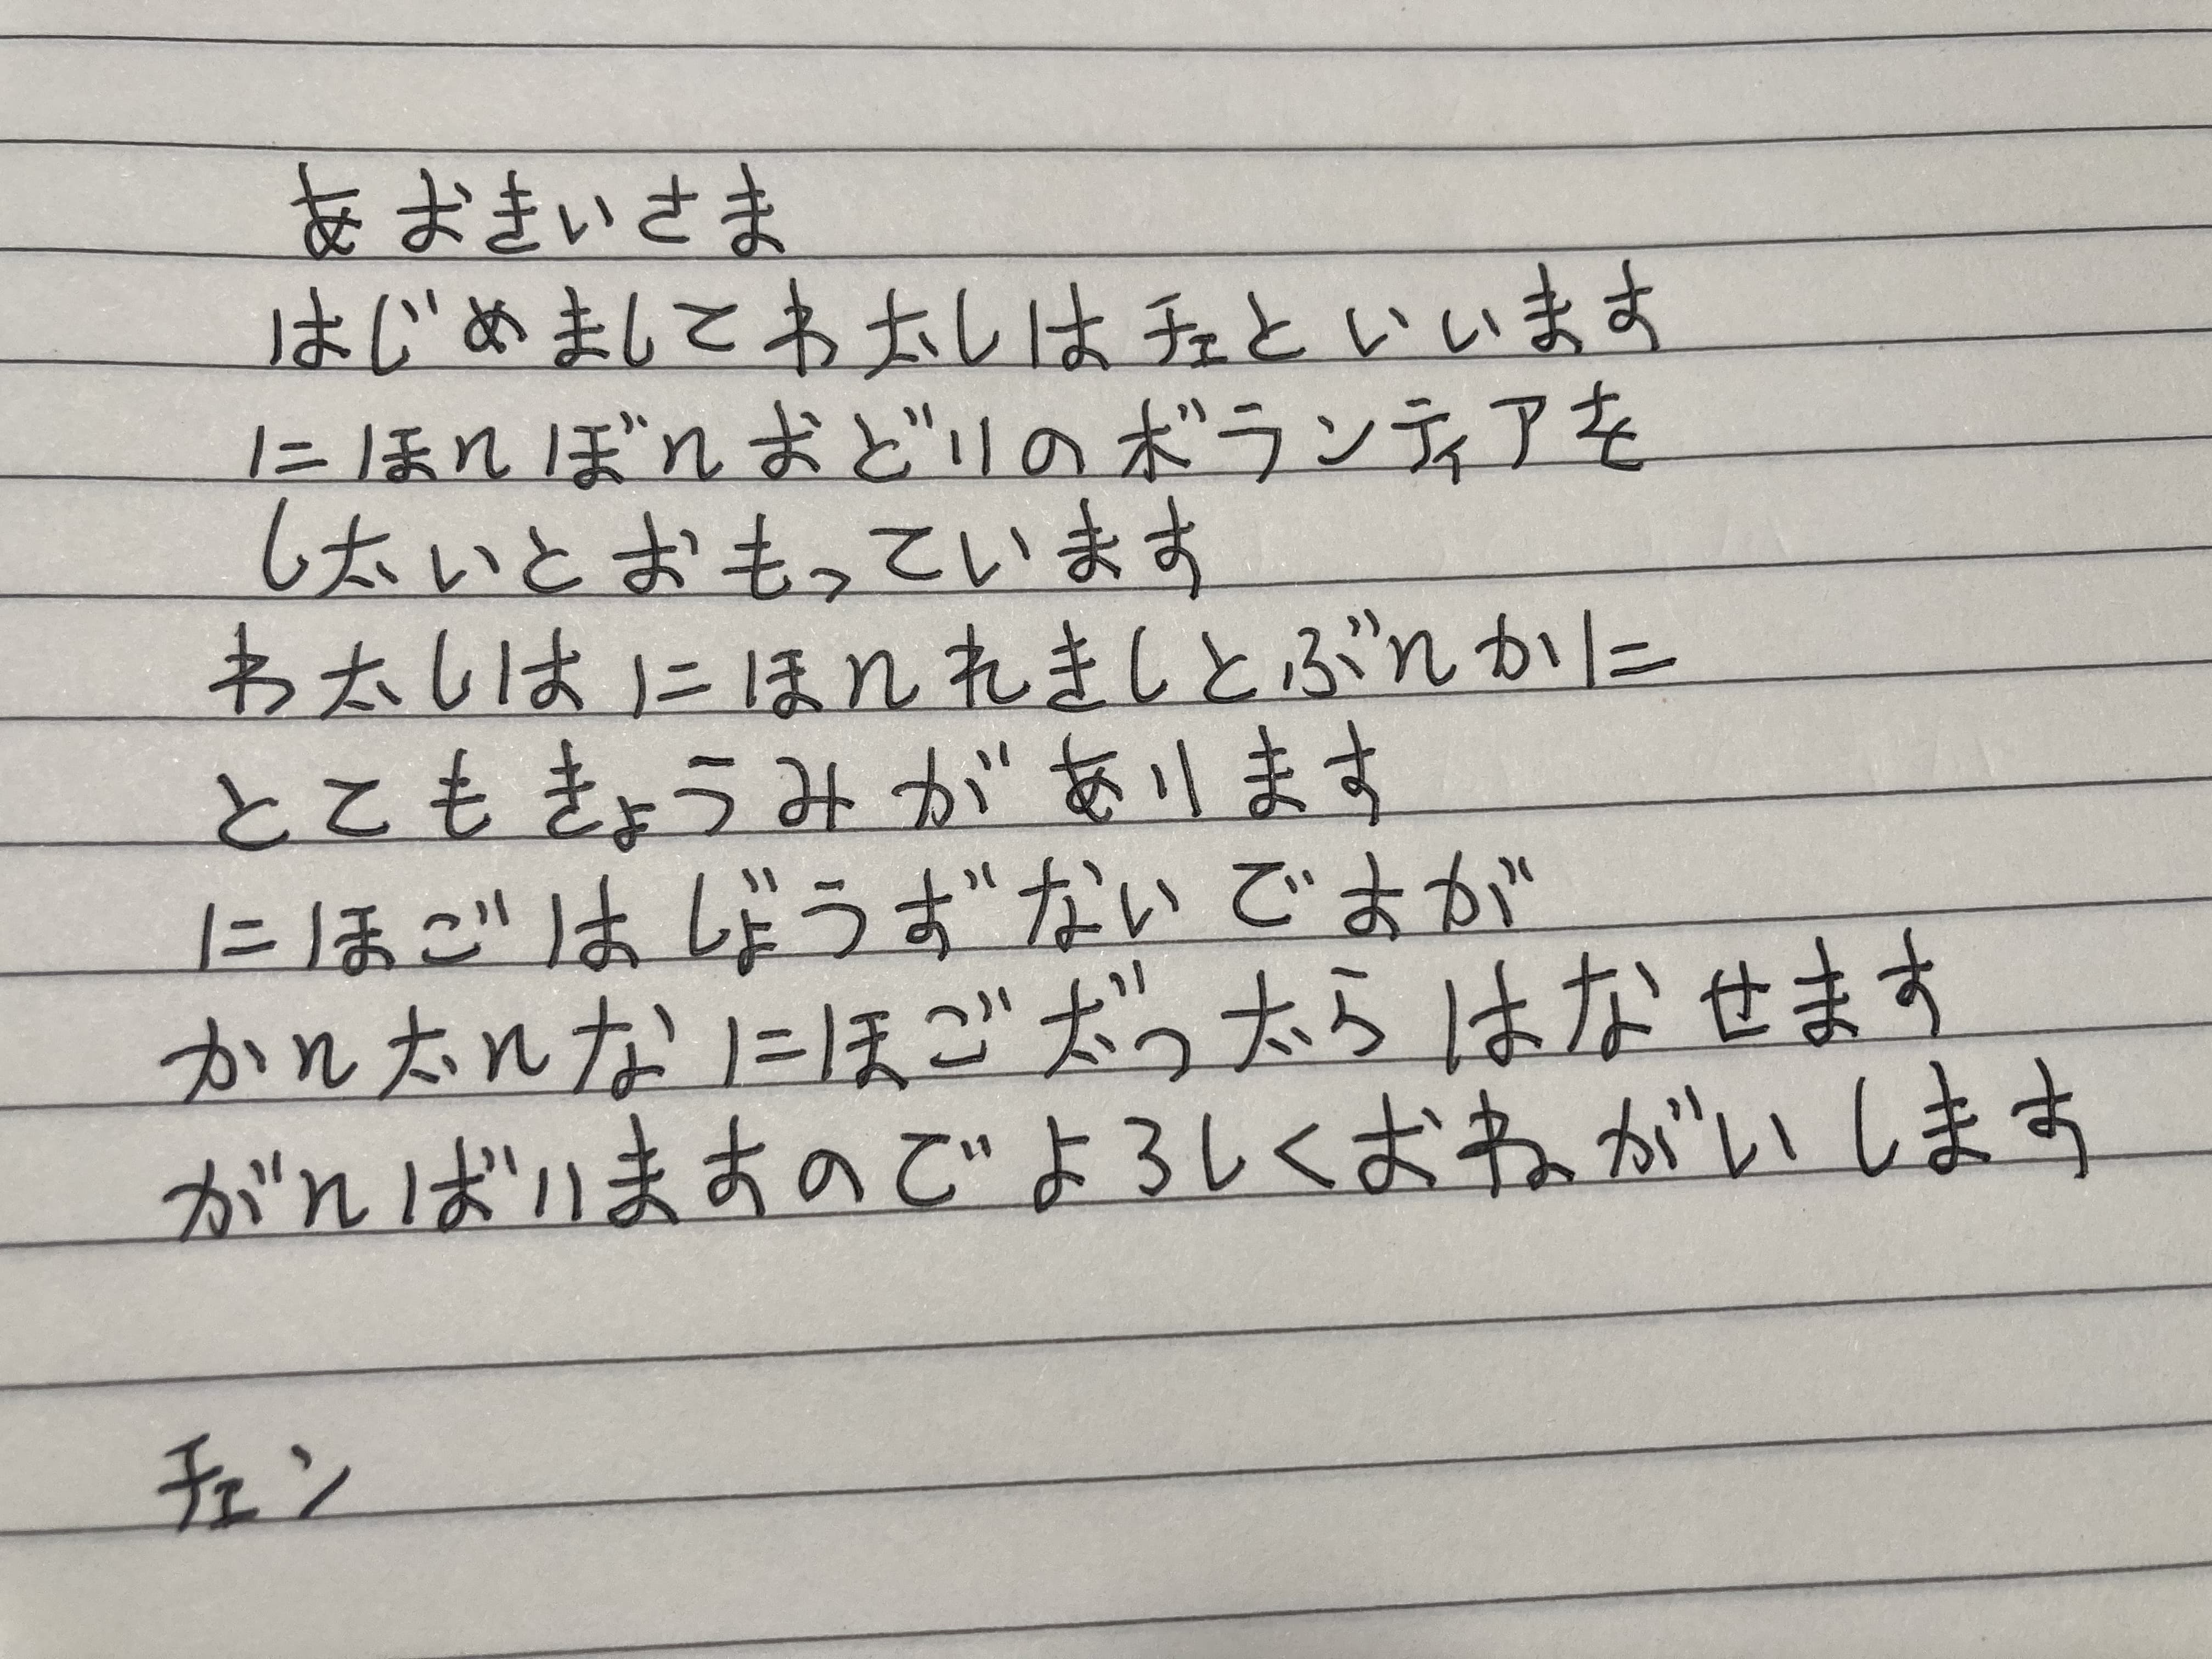 あおきいさま
はじめましてわ太しはチェといいます
にほんぼんおどりのボランティアを
し太いとおもっています
わ太しはにほんれきしとぶんかに
とてもきょうみがあります
にほごはじょうずないですが
かん太んなにほごだっ太らはなせます
がんばりますのでよろしくおねがいします
チェン